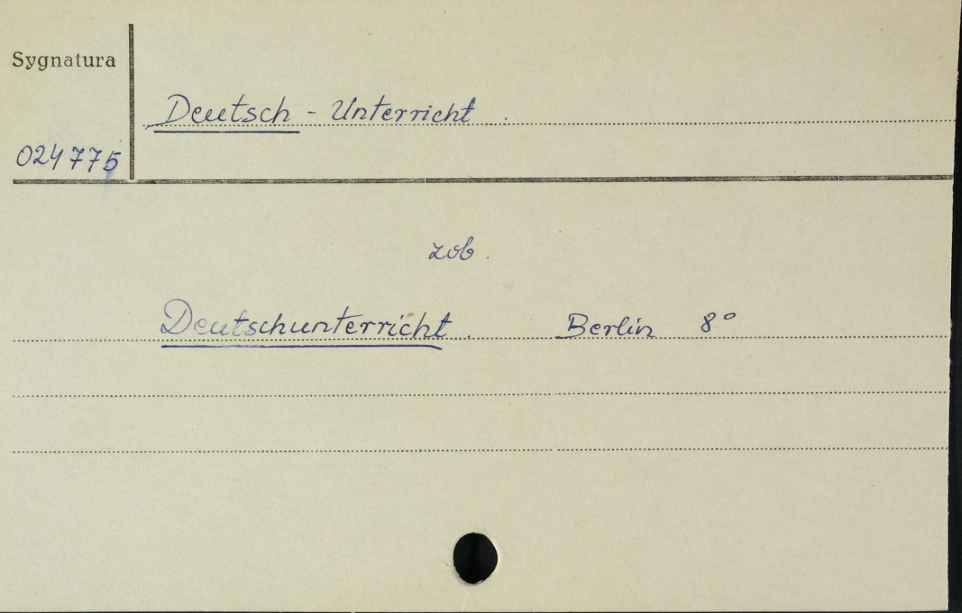 Sygnatura
Deutsch - Unterricht.
024775
zob.
Deutschunterricht. Berlin 8°